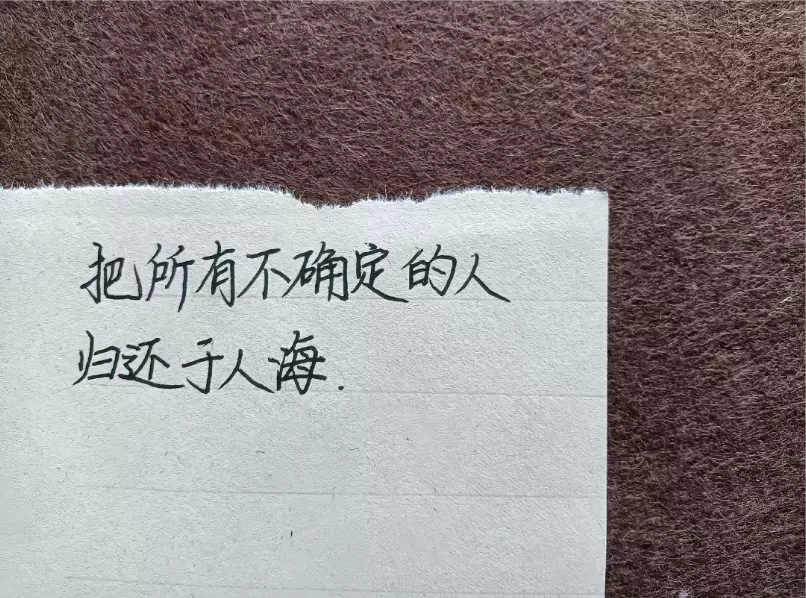 把所有不确定的人
归还于人海.